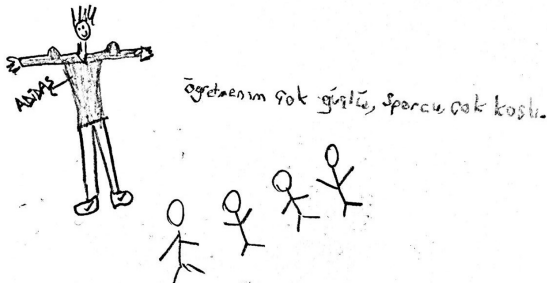 ADİDAS
öğretmenim çok güçlü, sporcu, çok kaslı.